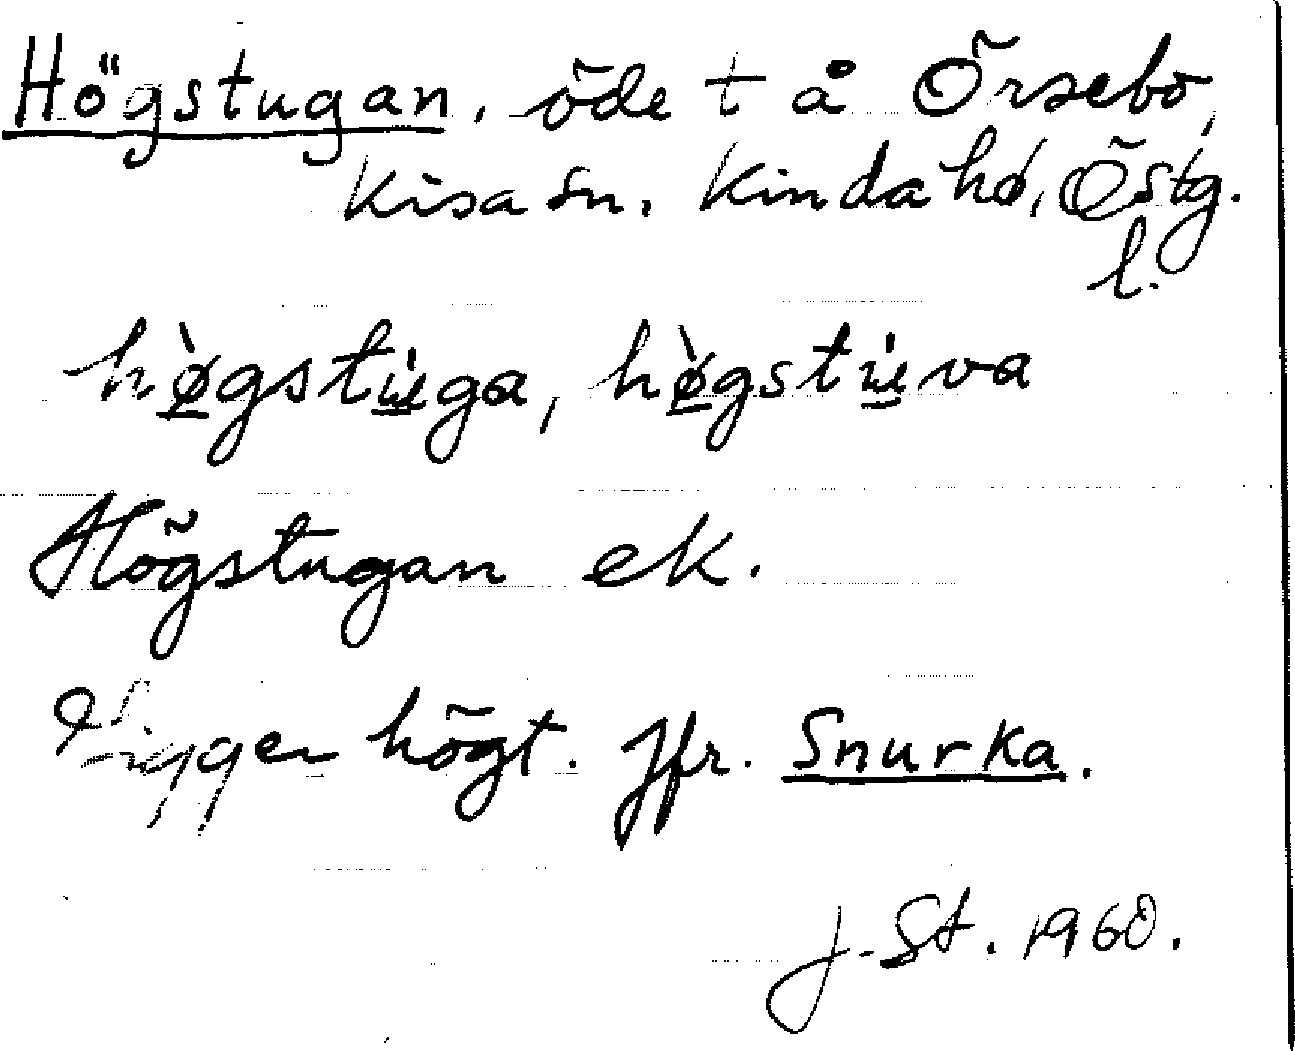 Högstugan, öde t å Örsebo,
Kisa sn. Kinda hd, Östg.
l.
hø̀gstu̇ga, hø̀gstu̇va
Högstugan ek.
Ligger högt. Jfr. Snurka.
J. St. 1960.